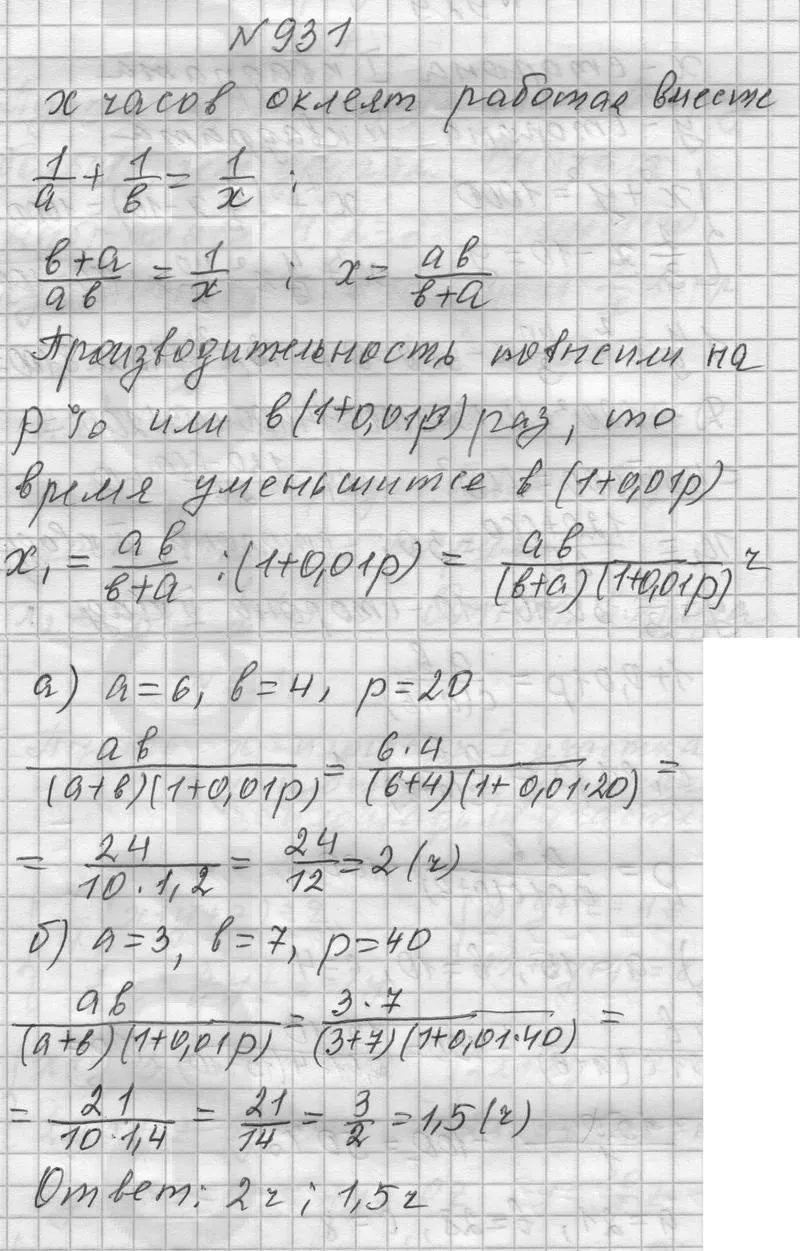 №931
х часов оклеят работая вместе
1/а + 1/в = 1/х ;
в+а/ав = 1/х ; х = ав/в+а
Производительность повысили на
р % или в (1+0,01р) раз, то
время уменьшится в (1+0,01р)
х₁ = ав/в+а : (1+0,01р) = ав/(в+а)(1+0,01р) ч
а) а=6, в=4, р=20
ав/(а+в)(1+0,01р) = 6·4/(6+4)(1+0,01·20) =
= 24/10·1,2 = 24/12 = 2 (ч)
б) а=3, в=7, р=40
ав/(а+в)(1+0,01р) = 3·7/(3+7)(1+0,01·40) =
= 21/10·1,4 = 21/14 = 3/2 = 1,5 (ч)
Ответ: 2 ч ; 1,5 ч